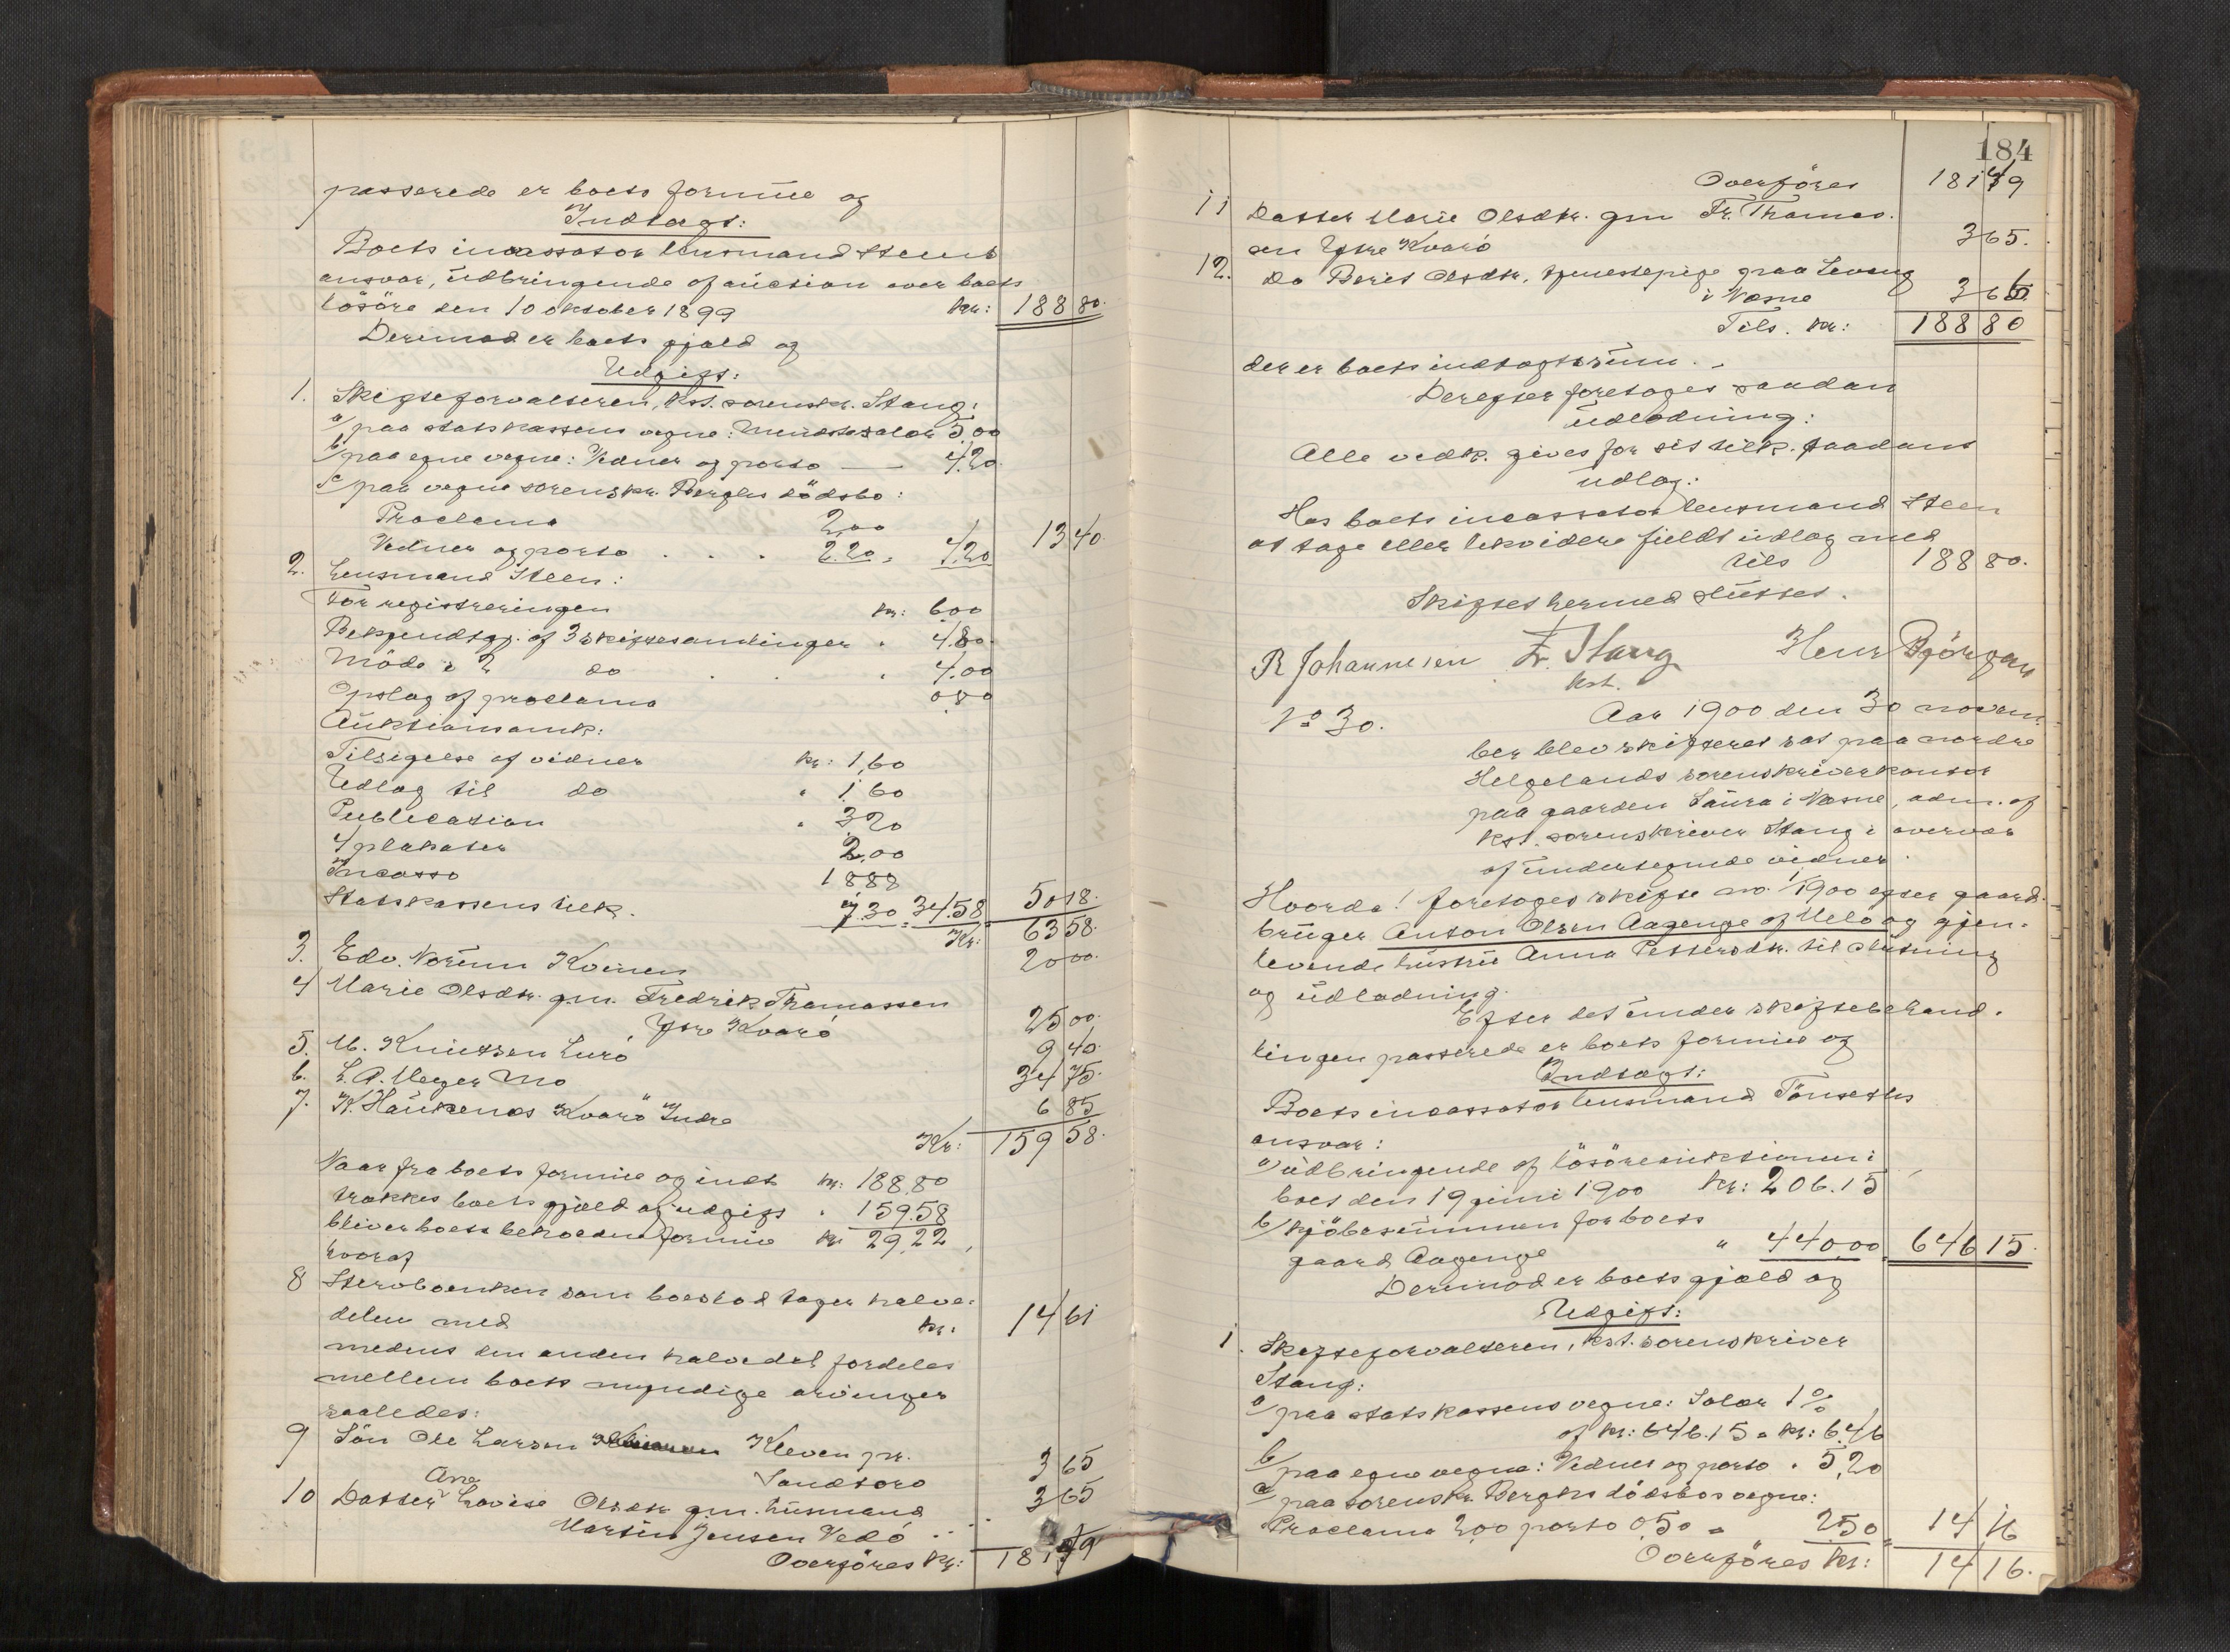 passerede er boets formue og
Indtægt:
Boets incassator lensmand Steens
ansvar, udbringende af auction over boets
lösöre den 10 oktober 1899 kr: 188 80.
Derimod er boets gjæld og
Udgift:
1. Skifteforvalteren, kst. sorenskr. Stang:
a/ paa statskassens vegne: Mindstesalær 5,00
b/ paa egne vegne: Vidner og porto — 4,20
c/ paa vegne sorenskr. Berghs dödsbo:
Proclama 2,00
Vidner og porto . . . 2.20 = 4,20 13 40.
2. Lensmand Steen:
For registreringen kr: 6,00
Bekjendtgj. af 3 skiftesamlinger " 4,80
Möde i 2 do . . " 4,00
Opslag af proclama 0,80
Auktionsomk:
Tilsigelse af vidner kr: 1,60
Udlæg til do " 1,60
Publication " 3,20
4 plakater 2,00
Incasso 18 88
Statskassens tilk. 7.30 = 34.58 50 18.
Kr: 63 58.
3. Edv. Norum Kvinen 20 00.
4 Marie Olsdtr. gm. Fredrik Thomassen
Ytre Kvarö 25 00.
5. M. Knutzen Lurö 9 40.
6. L. A. Meyer Mo 34 75.
7. K. Haukenes Kvarö Indre 6 85
Kr: 159 58.
Naar fra boets formue og indt. kr: 188,80
trækkes boets gjæld og udgift " 159.58
bliver boets beholdne formue kr 29,22,
hvoraf
8 Stervboenken som boeslod tager halve-
delen med kr: 14 61
medens den anden halvedel fordeles
mellem boets myndige arvinger
saaledes:
9 Sön Ole Larsen Kleven pr.
Sandtorv 3 65
10 Datter Ane Lovise Olsdtr gm. husmand 3 65
Martin Jensen Vedö . . . .
Overföres kr: 181 49
184
Overföres 181 49
11 Datter Marie Olsdtr. gm Fr. Thomas-
sen Ytre Kvarö 3 65.
12. Do Berit Olsdtr, tjenestepige paa Levang
i Næsne 3 66
Tils. kr: 188 80
der er boets indtægtssum. -
Derefter foretoges saadan
udlodning:
Alle vedk. gives for sit tilk. saadant
udlæg:
Hos boets incassator lensmand Steen
at tage eller likvidere fuldt udlæg med
tils 188 80.
Skiftet hermed sluttet.
R Johannesen Fr. Stang Henr Bjørgan
kst.
No 30. Aar 1900 den 30 novem-
ber blev skifteret sat paa nordre
Helgelands sorenskriverkontor
paa gaarden Saura i Næsne, adm. af
kst. sorenskriver Stang i overvær
af undertegnede vidner.
Hvorda! foretoges skifte no. 1/1900 efter gaard-
bruger Anton Olsen Aagenge af Melö og gjen-
levende hustru Anna Pettersdtr. til slutning
og udlodning.
Efter det under skiftebehand-
lingen passerede er boets formue og
Indtægt:
Boets incassator lensmand Tönseths
ansvar:
a/ udbringende af lösöreauktionen i
boet den 19 juni 1900 kr: 206.15
b/ kjöbesummen for boets
gaard Aagenge " 440,00 646 15.
Derimod er boets gjæld og
Udgift:
1. Skifteforvalteren, kst. sorenskriver
Stang:
a/ paa statskassens vegne: Salær 1 %
af kr: 646.15 = kr: 6,46
b/ paa egne vegne: Vidner og porto " 5,20
c/ paa sorenskr. Berghs dödsbos vegne:
Proclama 2,00 porto 0,50 = 2.50 14 16
Overföres kr: 14 16.